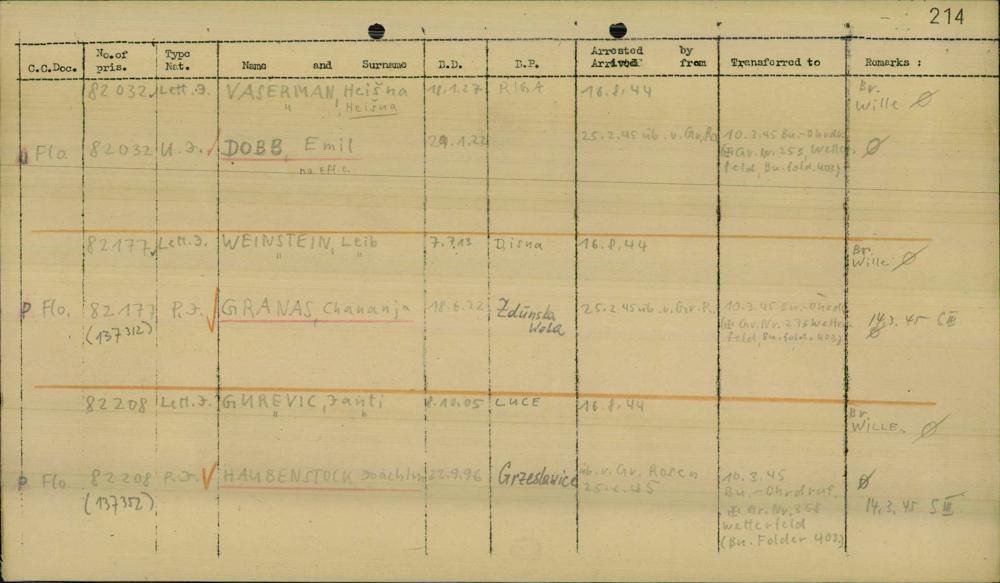 214
C.C.Doc. No.of pris. Type Nat. Name and Surname B.D. D.P. Arrested by Arrived from Transferred to Remarks :
82032 Lett.J. VASERMAN, Heišna 18.1.27 RIGA 16.8.44 Br.
" Heišna Wille Ø
Fla 82032 U.J. DOBB, Emil 29.1.22 25.2.45 üb.v.Gr.Ro 10.3.45 Bu.-Ohrdru Ø
no Eff.C. Gr.Nr.253, Wetter
feld, Bu.fold.403)
82177 Lett.J. WEINSTEIN, Leib 7.7.13 Disna 16.8.44 Br.
" " Wille Ø
P Flo. 82177 P.J. GRANAS, Chananja 18.6.22 Zdunska 25.2.45 üb.v.Gr.R. 10.3.45 Bu.-Ohrdr
(137312) Wola Gr.Nr.273 Wetter 14.3.45 S III
feld, Bu.fold.403) Ø
82208 Lett.J. GUREVIC, Janti 8.10.05 LUCE 16.8.44 Br.
" " WILLE. Ø
P Flo. 82208 P.J. HAUBENSTOCK Joachim 22.9.96 Grzeslawice üb.v.Gr.Rosen 10.3.45 Ø
(137352) 25.2.45 Bu.-Ohrdruf, 14.3.45 S III
Gr.Nr.368
Wetterfeld
(Bu.Folder 403)